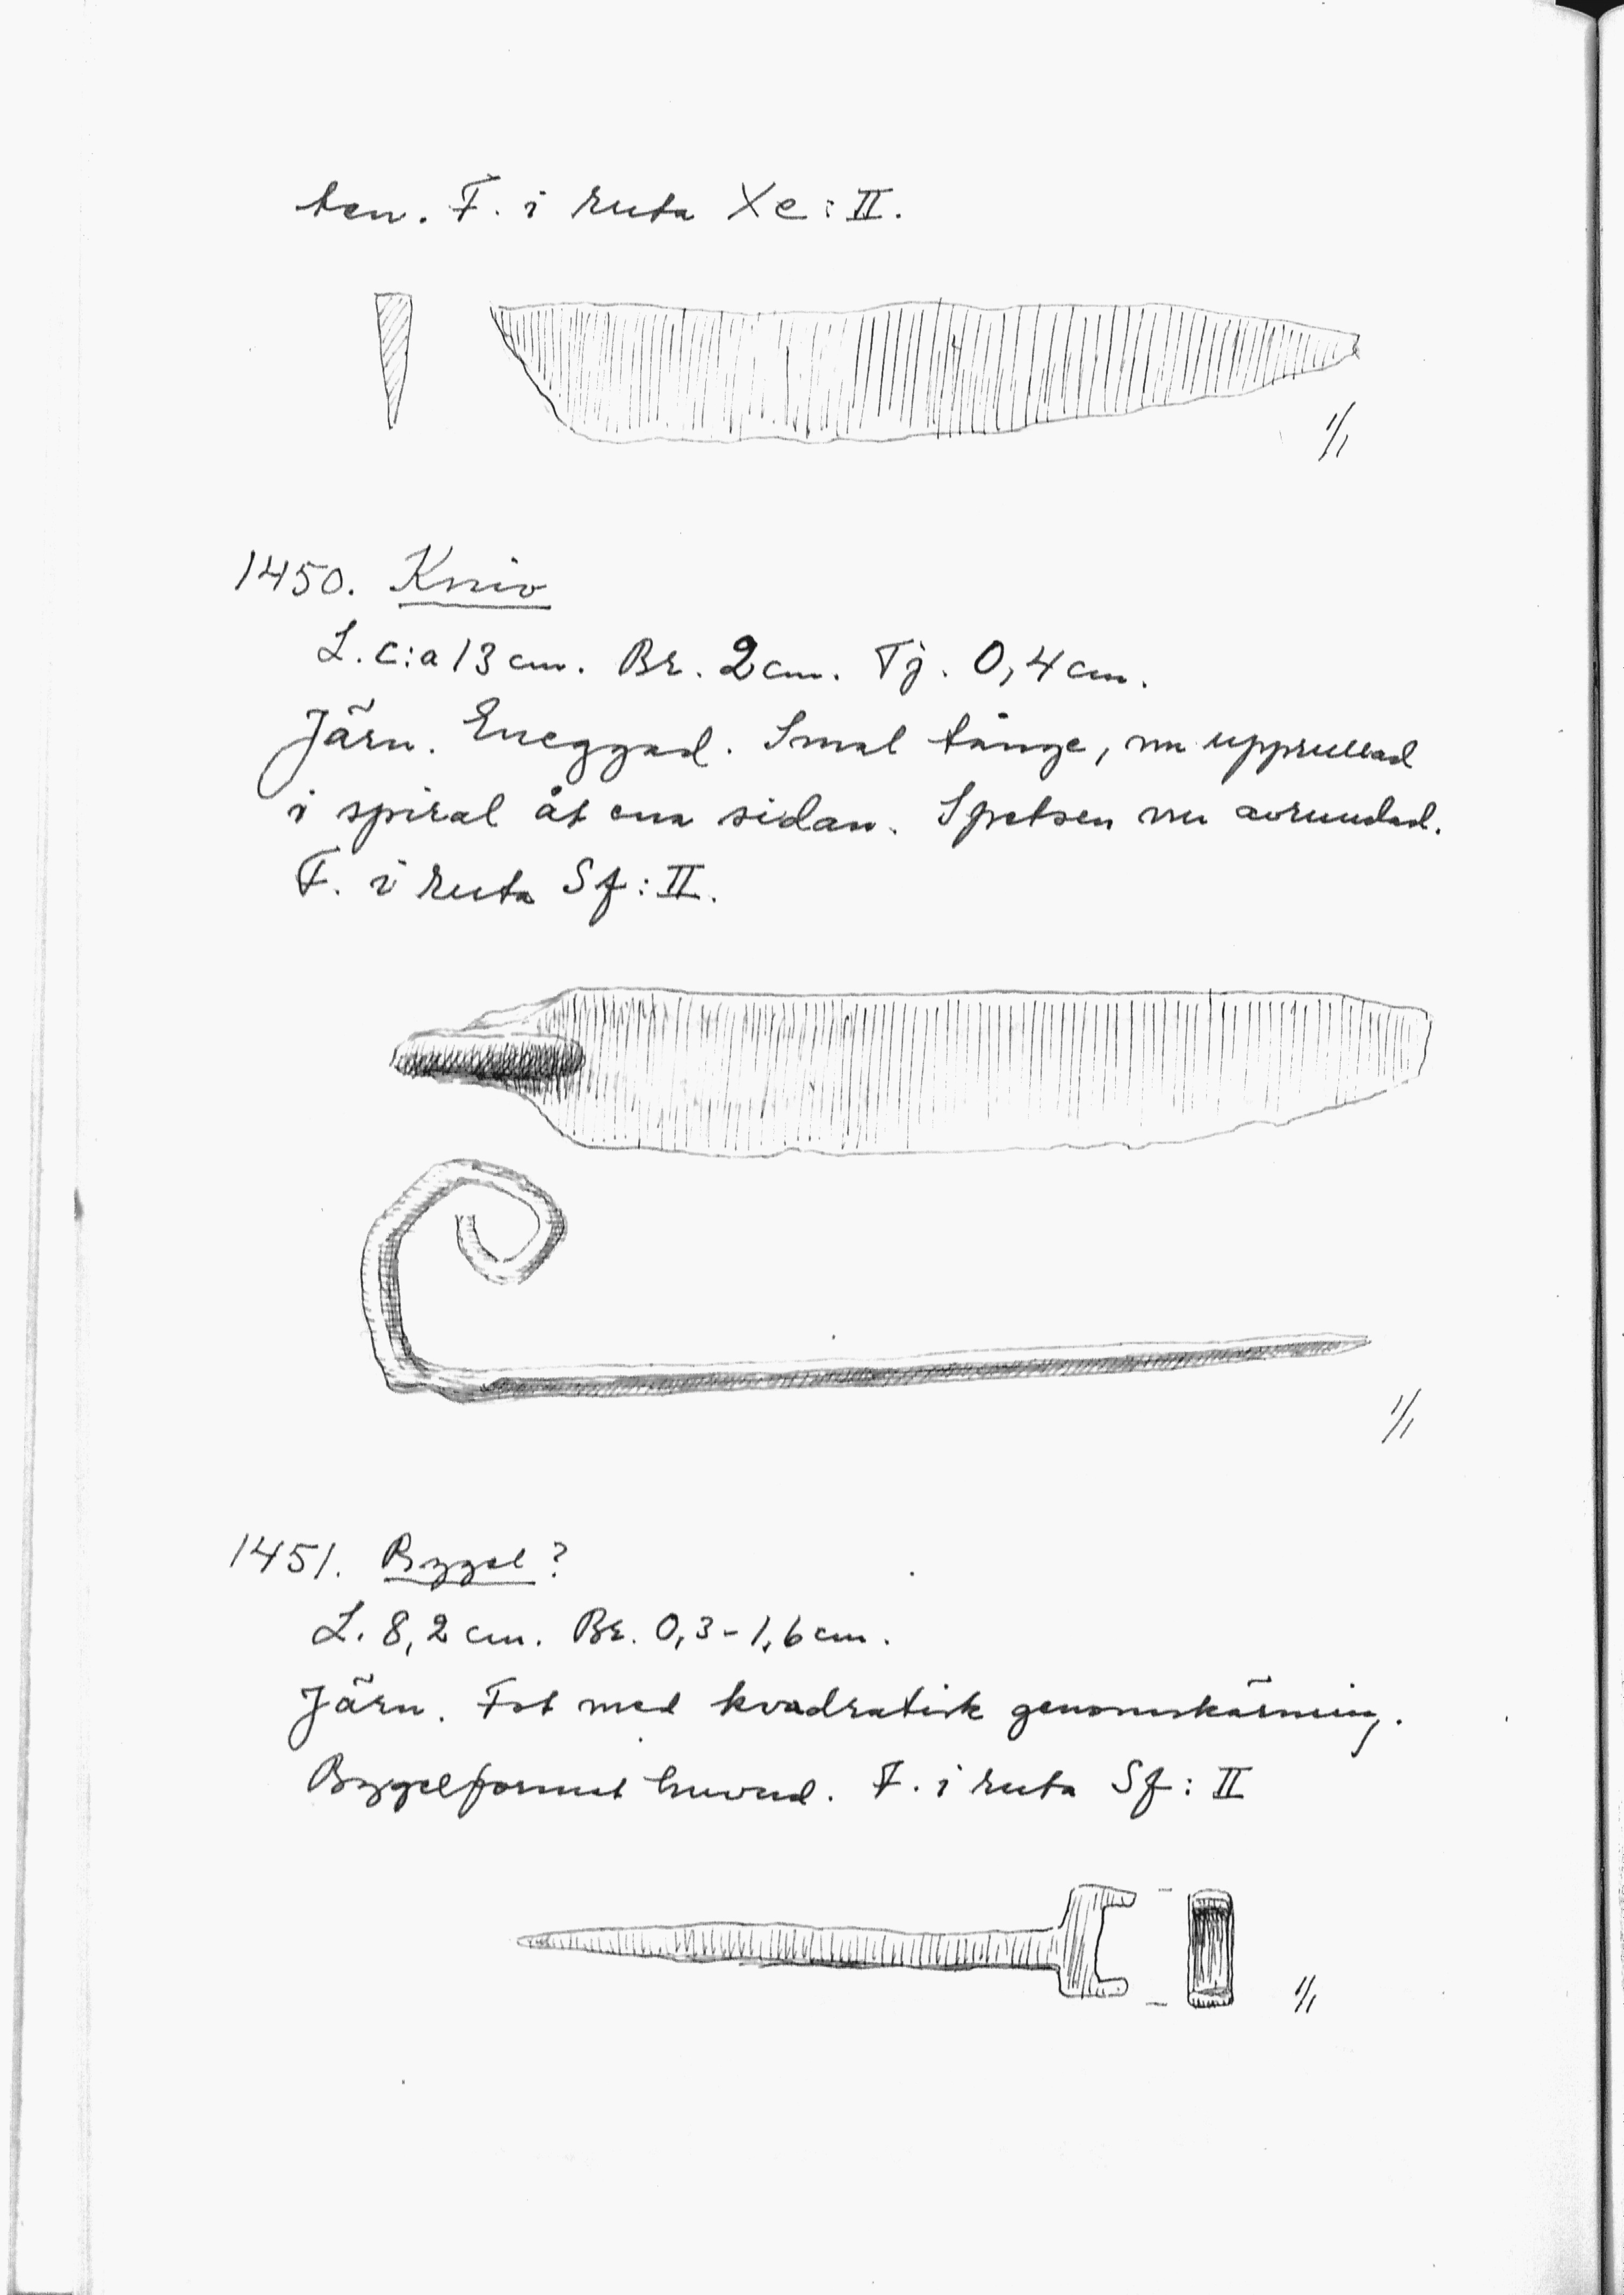 ten. F. i ruta Xe:II.
1/1
1450. Kniv
L. c:a 13 cm. Br. 2 cm. Tj. 0,4 cm.
Järn. Eneggad. Smal tånge, nu upprullad
i spiral åt ena sidan. Spetsen nu avrundad.
F. i ruta Sf:II.
1/1
1451. Bygel?
L. 8,2 cm. Br. 0,3-1,6 cm.
Järn. Fot med kvadratisk genomskärning.
Bygelformat huvud. F. i ruta Sf:II
1/1